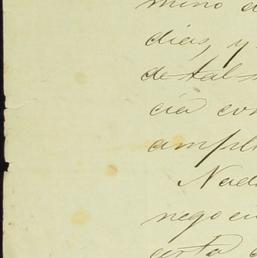 mino d
dias, y
de tal s
cia con
ampli
Nad
negocio
cesta